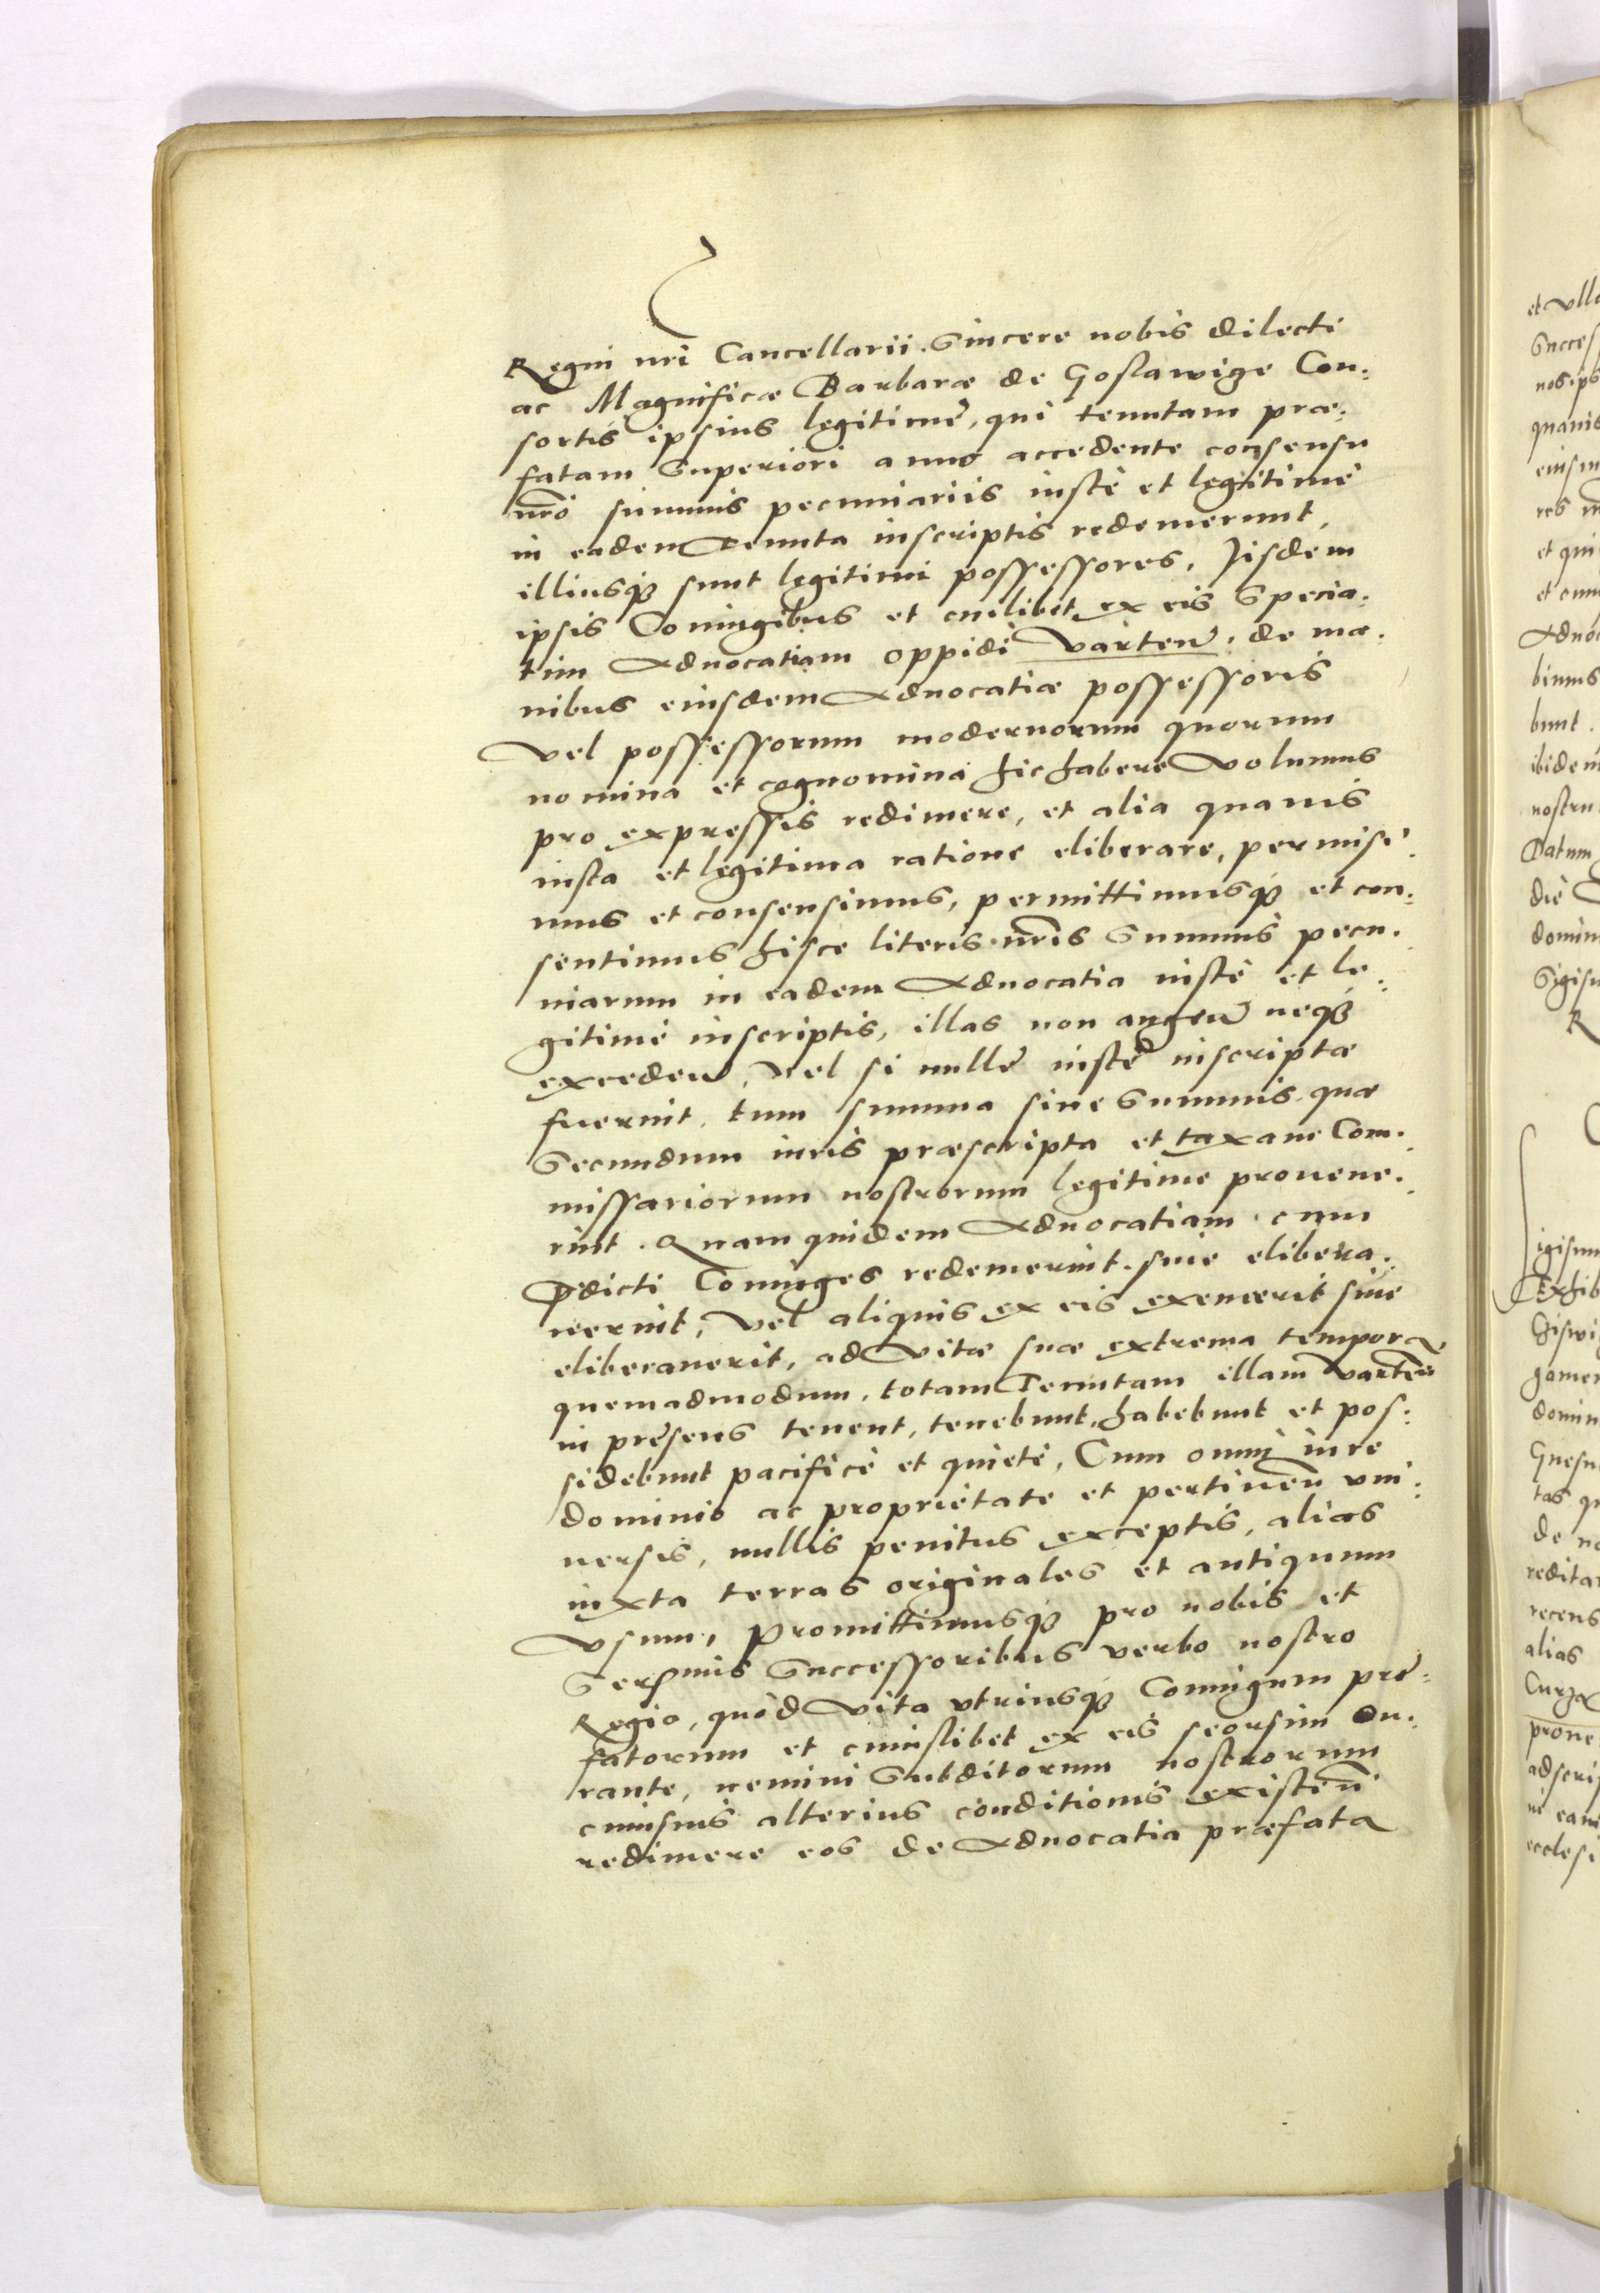 Regni nri Cancellarii. Sincere nobis dilecti
ac Magnificæ Barbaræ de Goslawice Con:
sortis ipsius legitime, qui tenutam præ:
fatam Superiori anno accedente consensu
nro summis pecuniariis iuste et legitime
in eadem Tenuta inscriptis redemerunt,
illiusq sunt legitimi possessores, Iisdem
ipsis Coniugibus et cuilibet ex eis specia:
tim Aduocatiam oppidi Varten: de ma:
nibus eiusdem Aduocatiæ possessoris
vel possessorum modernorum quorum
nomina et cognomina hic habere volumus
pro expressis redimere, et alia quauis
iusta et legitima ratione eliberare, permisi:
mus et consensimus, permittimusq et con:
sentimus hisce literis nris Summis pecu:
niarum in eadem Aduocatia iuste et le:
gitime inscriptis, illas non augen neq
exceden, Vel si nulle iuste inscriptæ
fuerint, tum summa siue Summis quæ
Secundum iuris præscripta et taxam Com:
missariorum nostrorum legitime prouene:
rint. Quam quidem Aduocatiam cum
Pdicti Coniuges redemerint siue elibera:
uerint, Vel aliquis ex eis exemerit siue
eliberauerit, ad Vitæ suæ extrema tempora
quemadmodum totam Tenutam illam Varten
in presens tenent, tenebunt, habebunt et pos:
sidebunt pacifice et quiete, Cum omni iure
dominio ac proprietate et pertinen vni:
uersis, nullis penitus exceptis, alias
iuxta terras originales et antiquum
vsum, Promittimusq pro nobis et
Sersmis Successoribus verbo nostro
Regio, quod Vita vtriusq Coniugum pre:
fatorum et cuiuslibet ex eis seorsim du:
rante, nemini Subditorum nostrorum
cuiusuis alterius conditionis existen
redimere eos de Aduocatia præfata